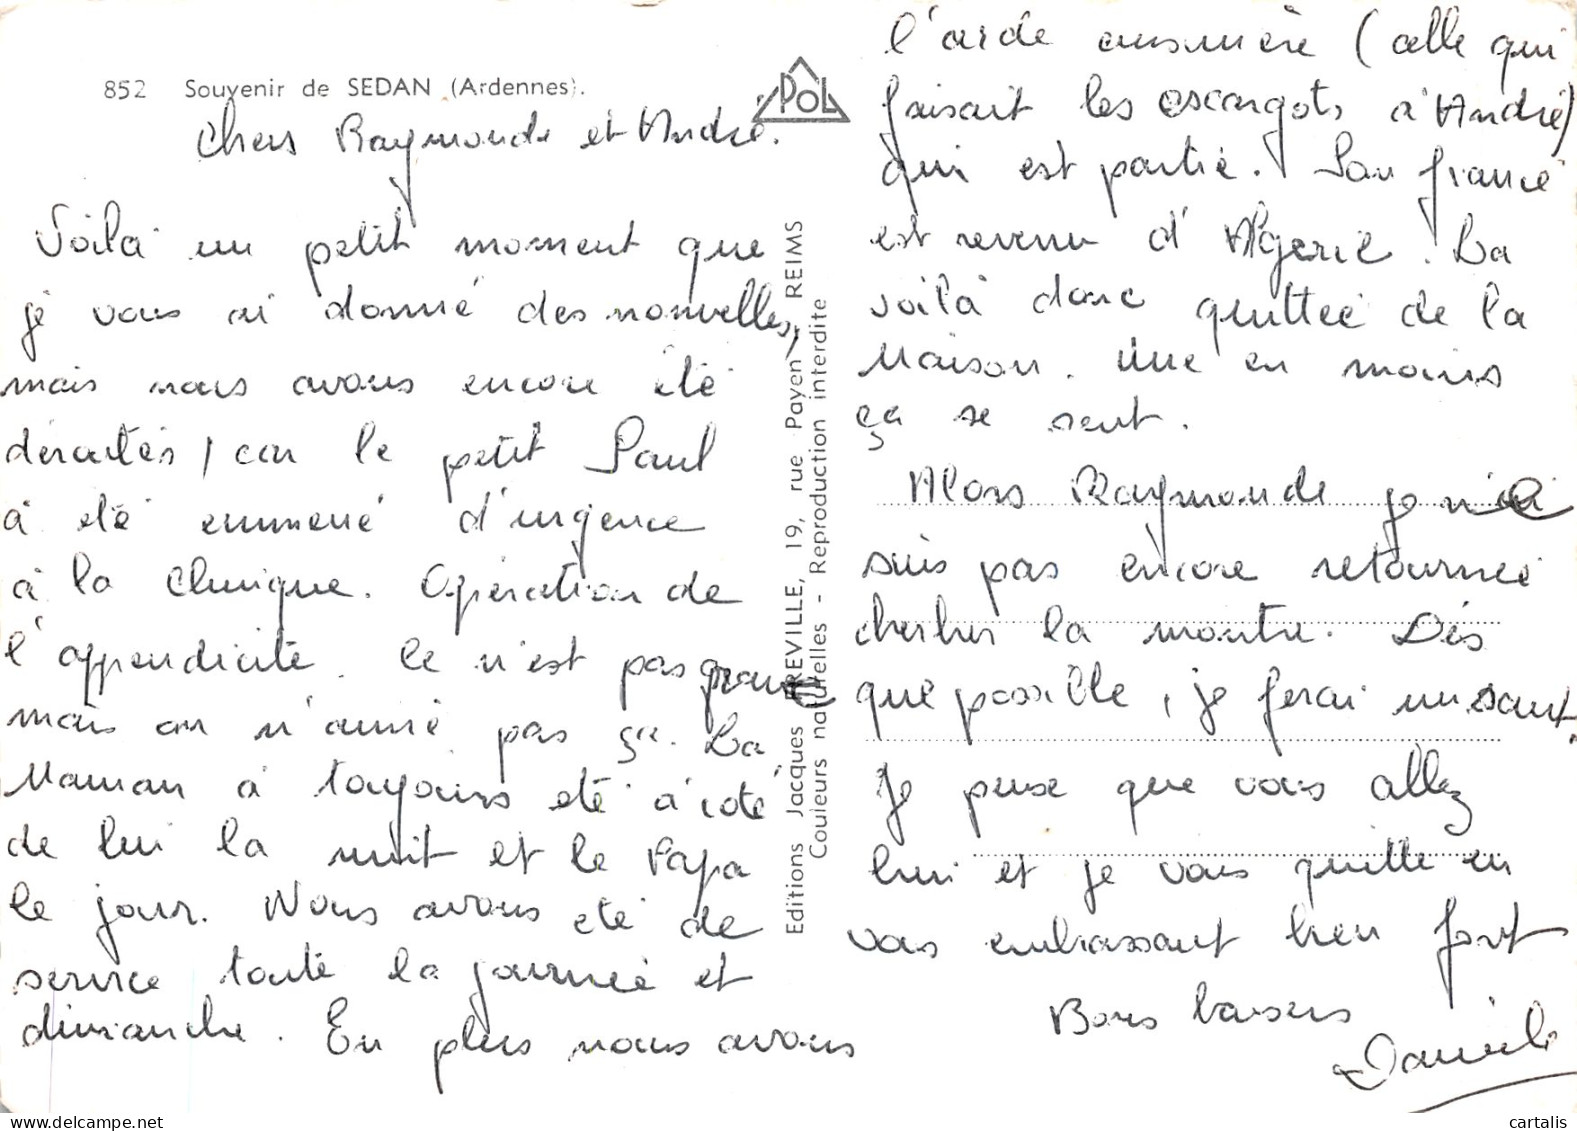 852 Souvenir de SEDAN (Ardennes).
POL
Chers Raymonde et André.
Voilà un petit moment que
je vous ai donné des nouvelles,
mais nous avons encore été
, car le petit Paul
a été emmené d'urgence
à la clinique. Opération de
l'appendicite. Ce n'est pas grave
mais on n'aime pas ça. La
Maman a toujours été à côté
de lui la nuit et le Papa
le jour. Nous avons été de
service toute la journée et
dimanche. En plus nous avons
Editions Jacques FREVILLE, 19, rue Payen REIMS
Couleurs naturelles - Reproduction interdite
l'aide cuisinière (celle qui
faisait les escargots à André)
qui est partie. Son fiancé
est revenu d'Algérie. La
voilà donc quittée de la
Maison. Une en moins
ça se sent.
Alors Raymonde je n'
suis pas encore retournée
chercher la montre. Dès
que possible, je ferai un saut.
Je pense que vous allez
bien et je vous quitte en
vous embrassant bien fort
Bons baisers
Danielle
www.delcampe.net
cartalis